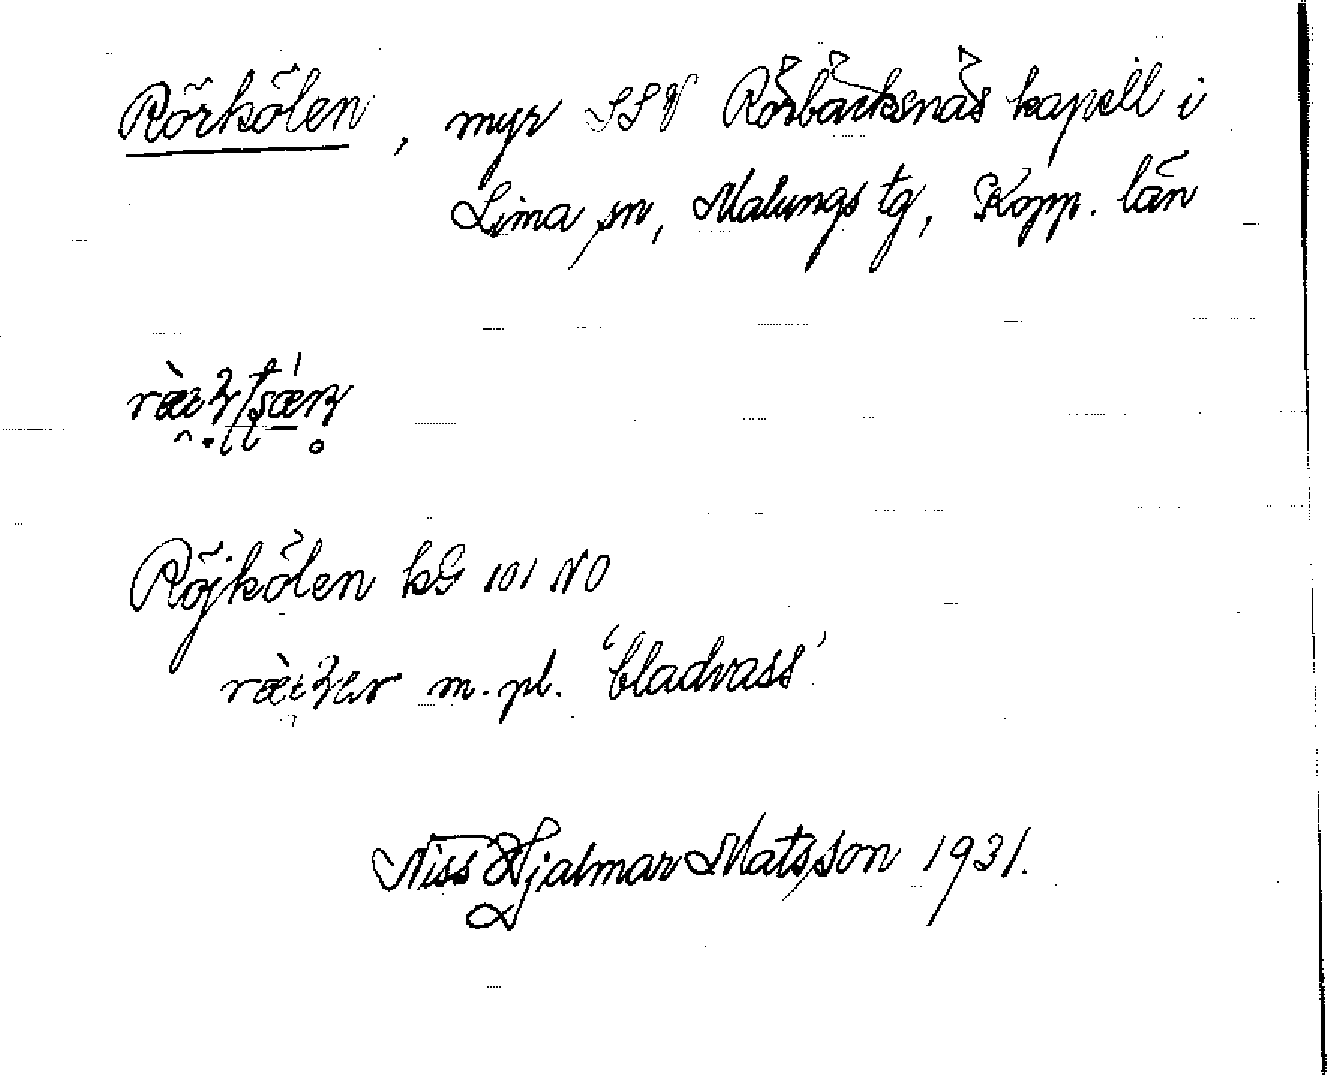 Rörkölen, myr SSV Rörbäcksnäs kapell i
Lima sn, Malungs tg, Kopp. län
Röjkölen kG 101 NO
m. pl. 'bladvass'
Niss Hjalmar Matsson 1931.